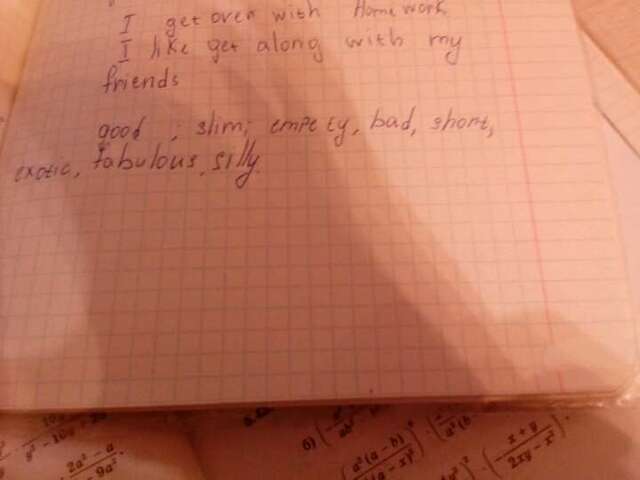 I get over with Homework
I like get along with my
friends
good ; slim; empety, bad, short,
exotic, fabulous, silly.
б)
2a² - a
- 9a²
a²(a - b)
x + y
2xy - x²